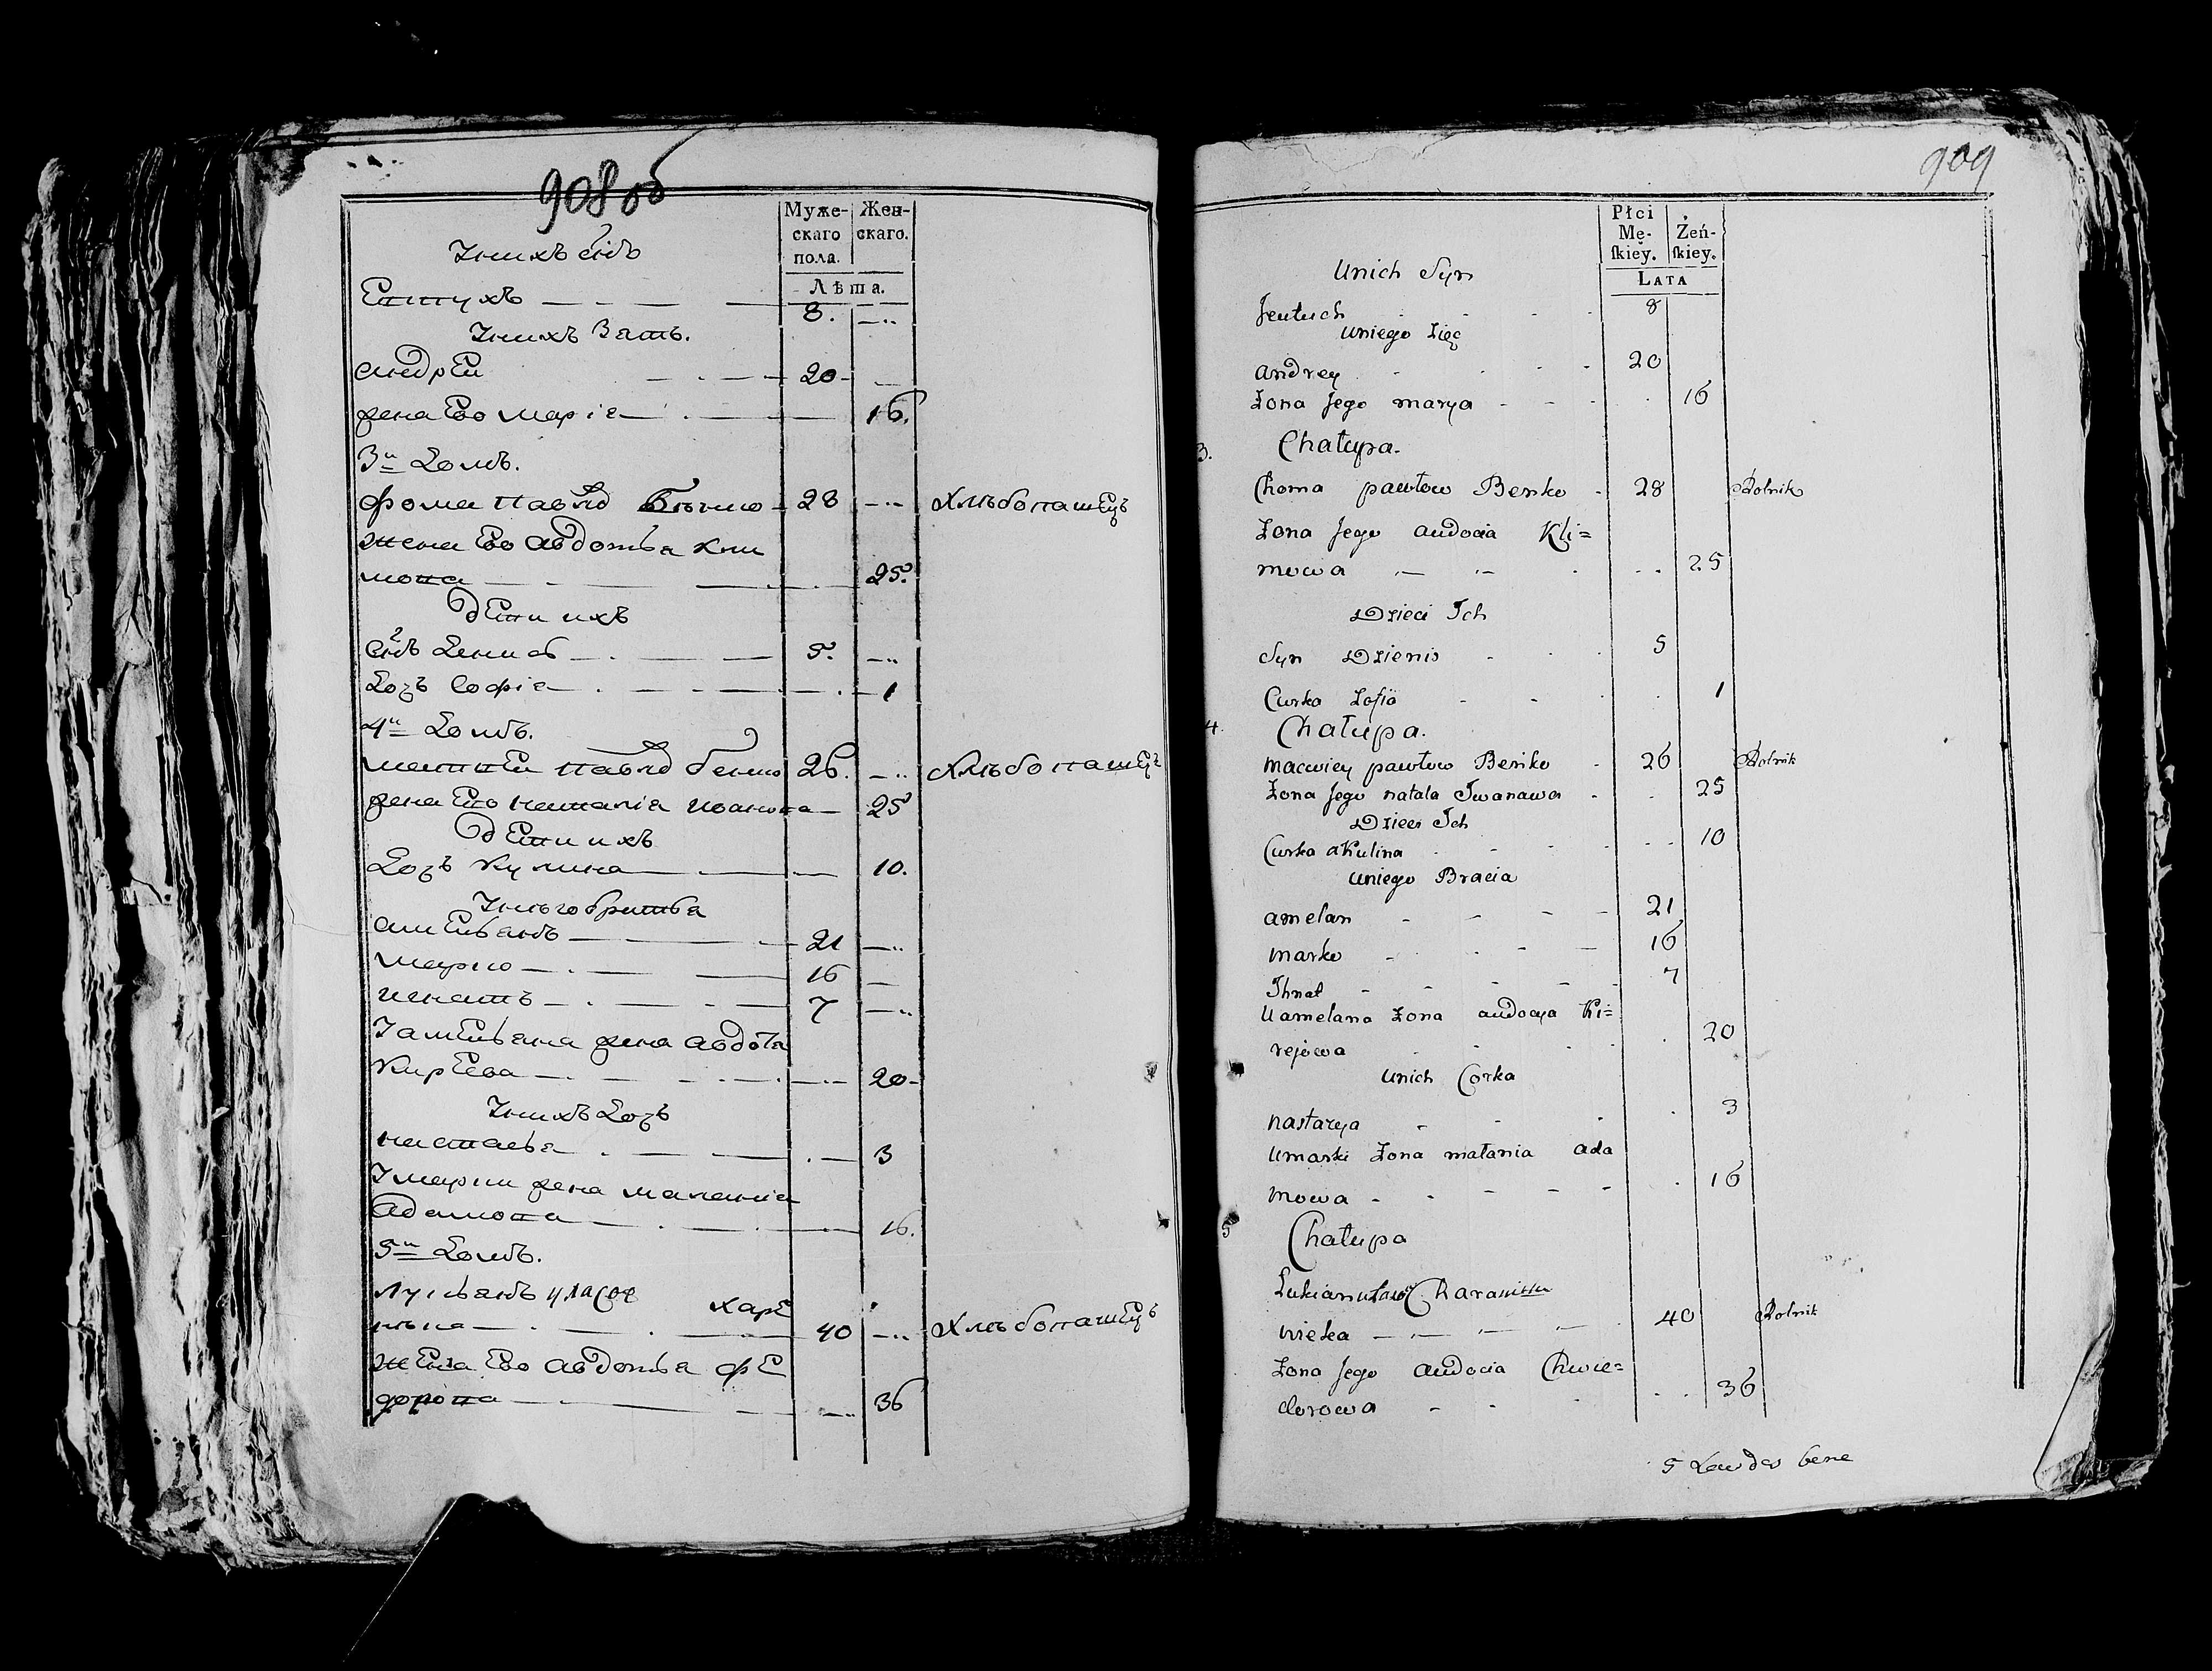 908 об
Муже-
скаго
пола.
Жен-
скаго.
Лѣта.
Унихъ сн̃ъ
Евтухъ 8.
Унихъ Зять.
андрей 20
жена Ево марія 16.
3й Домъ.
фома павлов Бенко 28 Хлѣбопашецъ
жена Ево авдотья Кли
мова 25.
дети ихъ
сн̃ъ Денисъ 5.
Дочь Софія 1
4й Домъ.
матвей павлов бенко 26. Хлѣбопашецъ
жена Ево наталія иванова 25
дети ихъ
Дочь Кулина 10.
Унего братья
амельянъ 21
марко 16
игнатъ 7
Уамельяна жена авдотя
Киреева 20
Унихъ Дочь
настасья 3
Умарки жена маланія
адамова 16.
5й Домъ.
лукьянъ уласов харе
40 Хлѣбопашецъ
жена Ево авдотья фе
дорова 36
909
Płci
Mę-
ſkiey.
Żeń-
ſkiey.
LATA
Unich Syn
Jeutuch 8
Uniego Zięć
andrey 20
Żona Jego marya 16
3. Chałupa.
Choma pawłow Beńko 28 Rolnik
Żona Jego audocia Kli=
mowa 25
Dzieci Ich
Syn Dzienis 5
Curka Zofia 1
4. Chałupa.
macwiey pawłow Beńko 26 Rolnik
Żona Jego natala Iwanawa 25
Dzieci Ich
Curka akulina 10
Uniego Bracia
amelan 21
marko 16
Ihnat 7
Uamelana Żona audocya Ki=
rejowa 20
Unich Corka
nastazya 3
Umarki Żona małania ada
mowa 16
5 Chałupa
Łukian
40 Rolnik
Żona Jego audocia Chwie=
dorowa 36
5